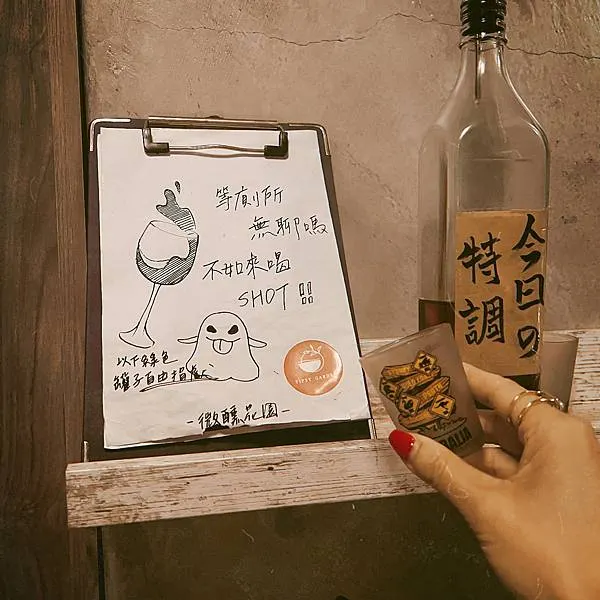 等廁所
無聊嗎
不如來喝
SHOT!!
以下綠色
罐子自由捐獻
-微醺花園-
TIPSY GARDEN
今日の
特調